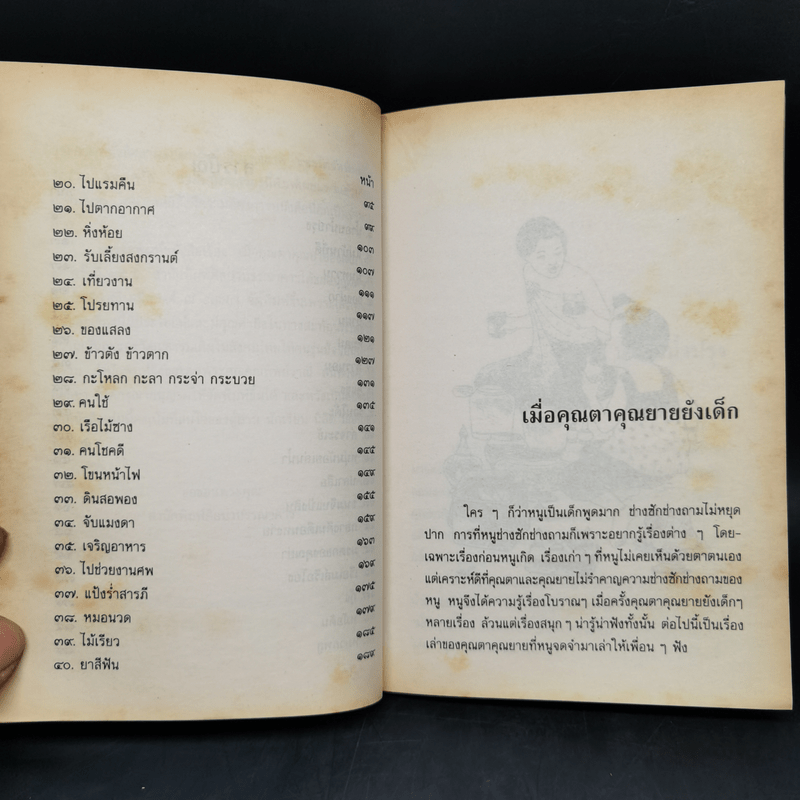 หน้า
๒๐. ไปแรมคืน ๙๕
๒๑. ไปตากอากาศ ๙๙
๒๒. หิ่งห้อย ๑๐๓
๒๓. รับเลี้ยงสงกรานต์ ๑๐๗
๒๔. เที่ยวงาน ๑๑๑
๒๕. โปรยทาน ๑๑๗
๒๖. ของแสลง ๑๒๑
๒๗. ข้าวตัง ข้าวตาก ๑๒๗
๒๘. กะโหลก กะลา กระจ่า กระบวย ๑๓๑
๒๙. คนใช้ ๑๓๕
๓๐. เรือไม้ซาง ๑๔๑
๓๑. คนโชคดี ๑๔๕
๓๒. โขนหน้าไฟ ๑๔๙
๓๓. ดินสอพอง ๑๕๕
๓๔. จับแมงดา ๑๕๙
๓๕. เจริญอาหาร ๑๖๓
๓๖. ไปช่วยงานศพ ๑๖๙
๓๗. แป้งร่ำสารภี ๑๗๕
๓๘. หมอนวด ๑๗๙
๓๙. ไม้เรียว ๑๘๕
๔๐. ยาสีฟัน ๑๘๙
เมื่อคุณตาคุณยายยังเด็ก
ใคร ๆ ก็ว่าหนูเป็นเด็กพูดมาก ช่างซักช่างถามไม่หยุด
ปาก การที่หนูช่างซักช่างถามก็เพราะอยากรู้เรื่องต่าง ๆ โดย-
เฉพาะเรื่องก่อนหนูเกิด เรื่องเก่า ๆ ที่หนูไม่เคยเห็นด้วยตาตนเอง
แต่เคราะห์ดีที่คุณตาและคุณยายไม่รำคาญความช่างซักช่างถามของ
หนู หนูจึงได้ความรู้เรื่องโบราณๆ เมื่อครั้งคุณตาคุณยายยังเด็กๆ
หลายเรื่อง ล้วนแต่เรื่องสนุก ๆ น่ารู้น่าฟังทั้งนั้น ต่อไปนี้เป็นเรื่อง
เล่าของคุณตาคุณยายที่หนูจดจำมาเล่าให้เพื่อน ๆ ฟัง